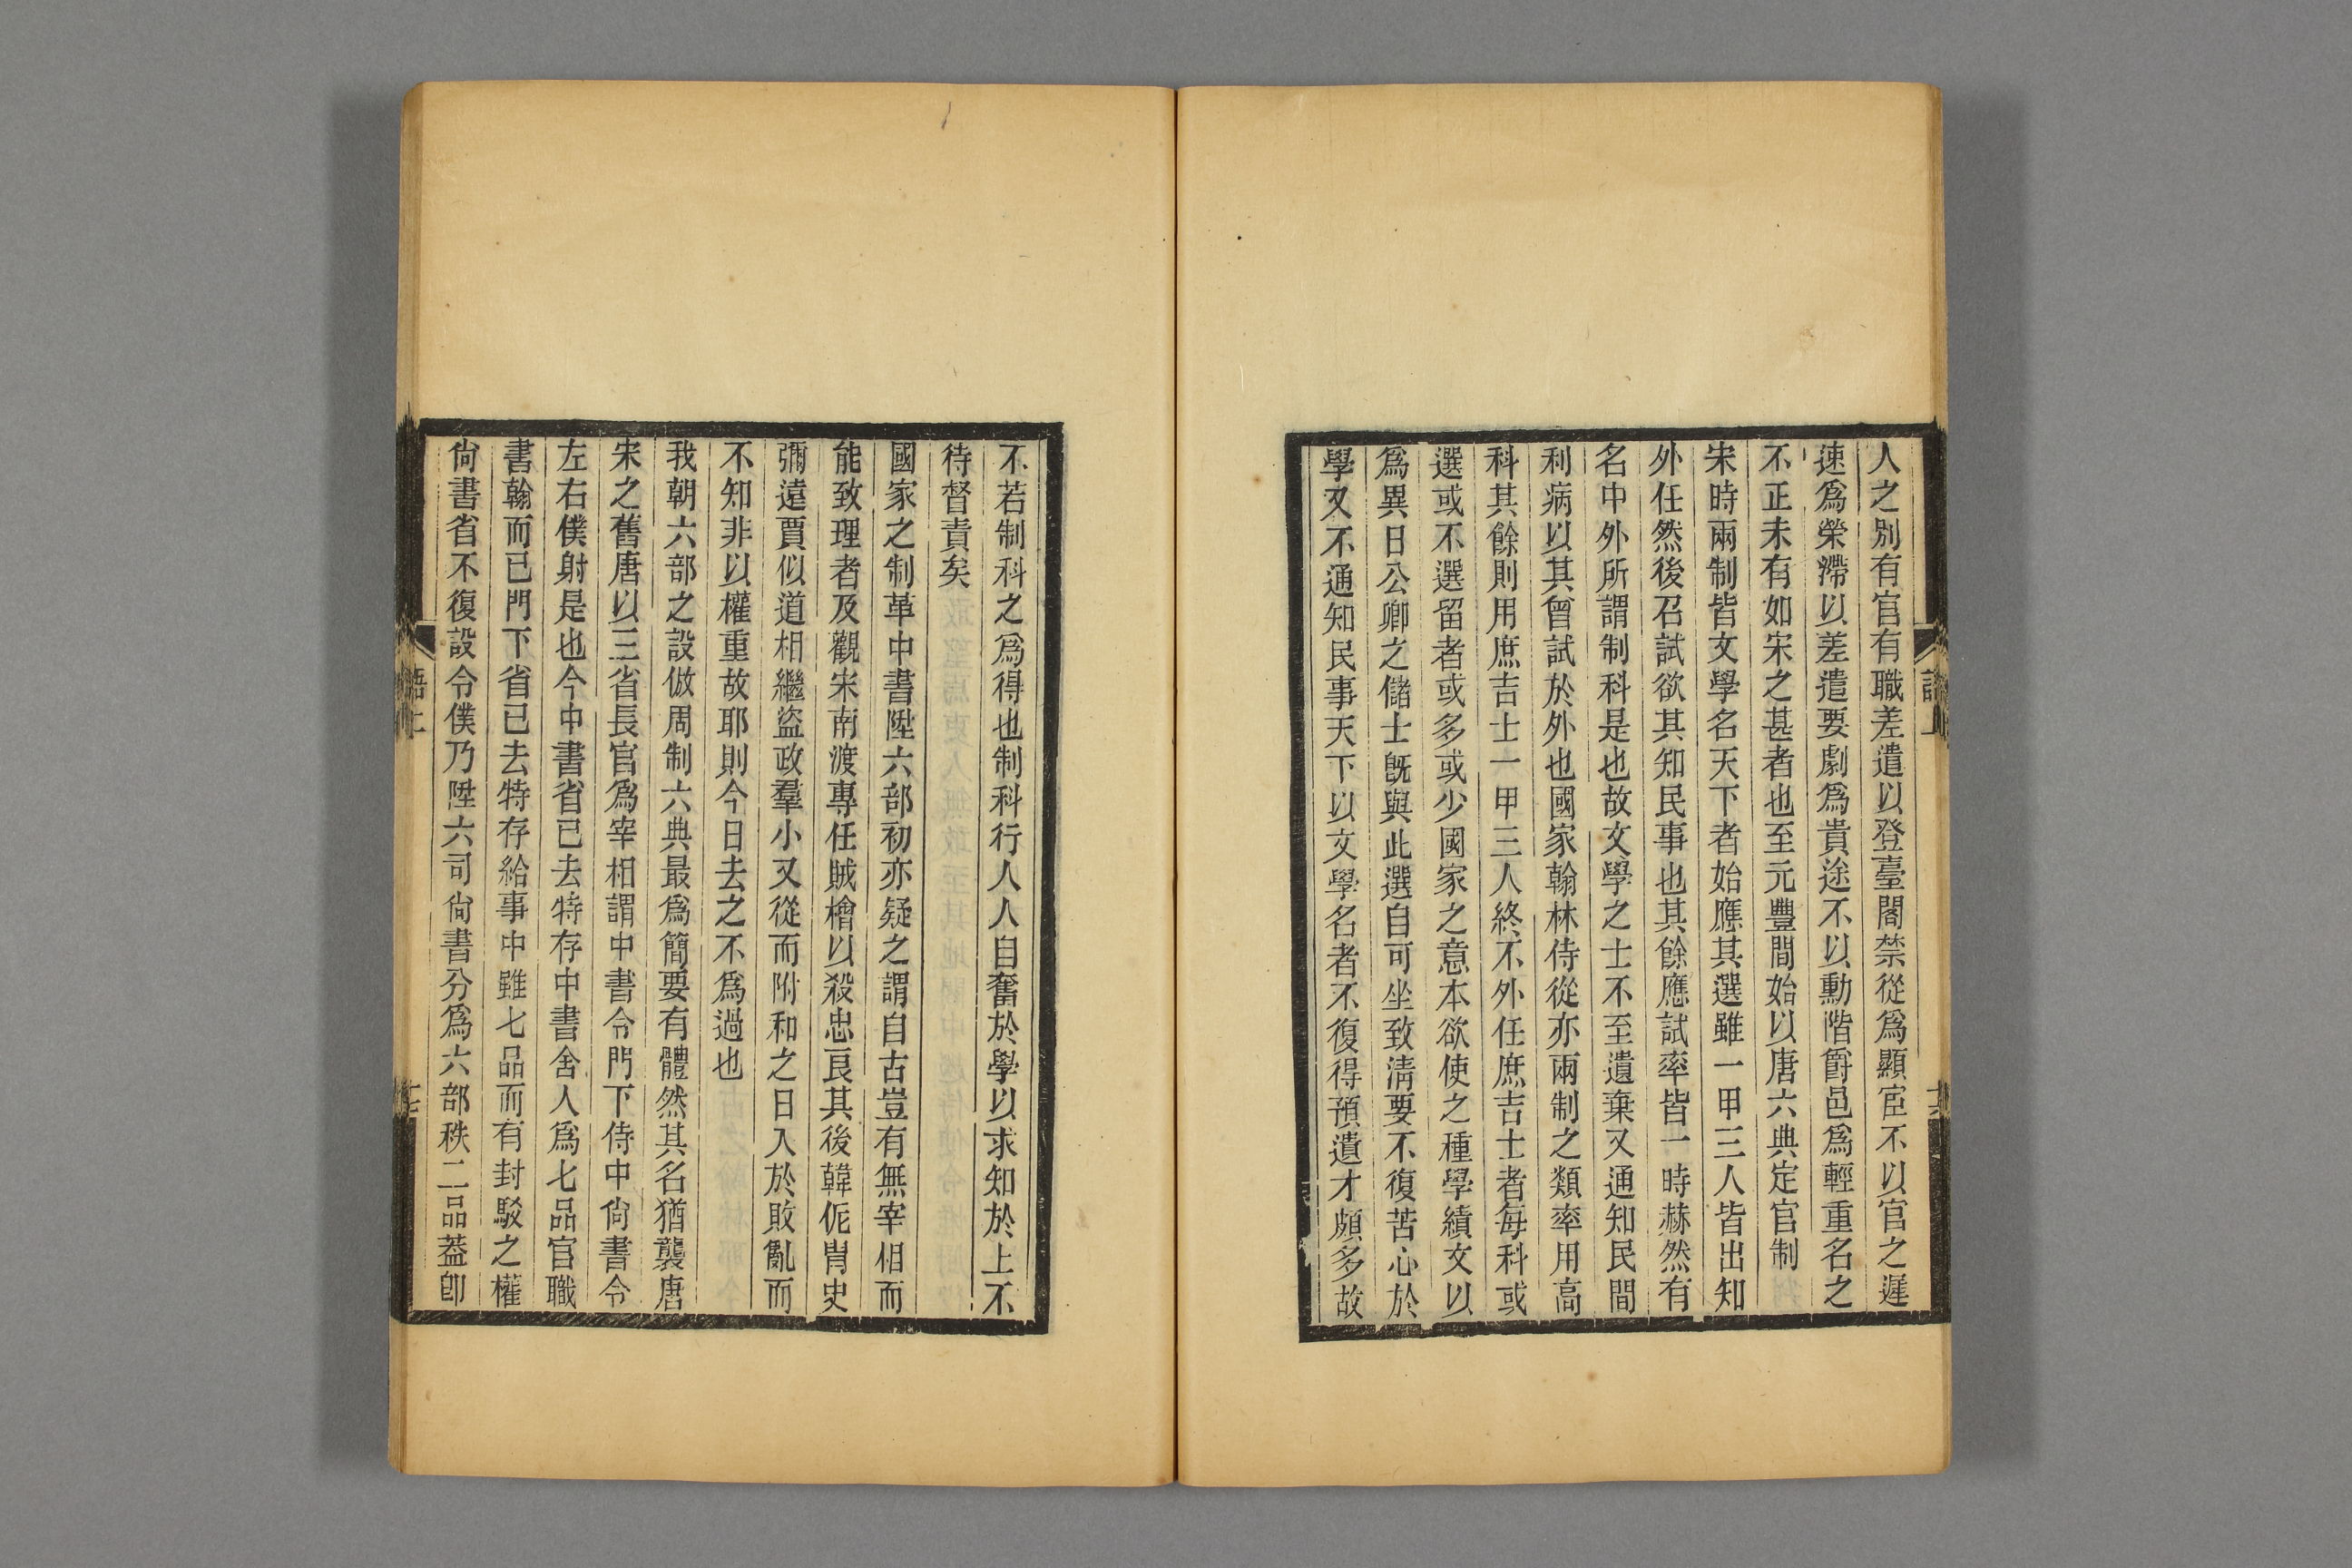 人之別有官有職有差遣以登臺閣禁從爲顯宦不以官之遲
速爲榮滯以差遣要劇爲貴途不以勳階爵邑爲輕重名之
不正未有如宋之甚者也至元豐間始以唐六典定官制
宋時兩制皆文學名天下者始應其選雖一甲三人皆出知
外任然後召試欲其知民事也其餘應試率皆一時赫然有
名中外所謂制科是也故文學之士不至遺棄又通知民間
利病以其曾試於外也國家翰林侍從亦兩制之類率用高
科其餘則用庶吉士一甲三人終不外任庶吉士者每科或
選或不選留者或多或少國家之意本欲使之種學績文以
爲異日公卿之儲士旣與此選自可坐致清要不復苦心於
學又不通知民事天下以文學名者不復得預遺才頗多故
不若制科之爲得也制科行人人自奮於學以求知於上不
待督責矣
國家之制革中書陞六部初亦疑之謂自古豈有無宰相而
能致理者及觀宋南渡專任賊檜以殺忠良其後韓侂胄史
彌遠賈似道相繼盜政羣小又從而附和之日入於敗亂而
不知非以權重故耶則今日去之不爲過也
我朝六部之設倣周制六典最爲簡要有體然其名猶襲唐
宋之舊唐以三省長官爲宰相謂中書令門下侍中尙書令
左右僕射是也今中書省已去特存中書舍人爲七品官職
書翰而已門下省已去特存給事中雖七品而有封駁之權
尙書省不復設令僕乃陞六司尙書分爲六部秩二品葢卽
語上
十七